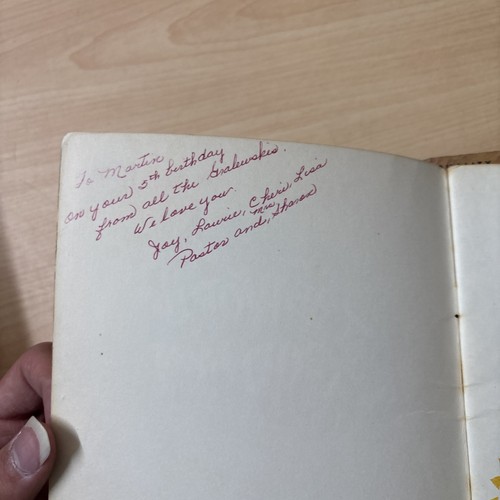 To Martin
on your 5th birthday
from all the Gralewskis.
We love you.
Joy, Laurie, Cheri, Lisa
Pastor and Mrs. Sharon